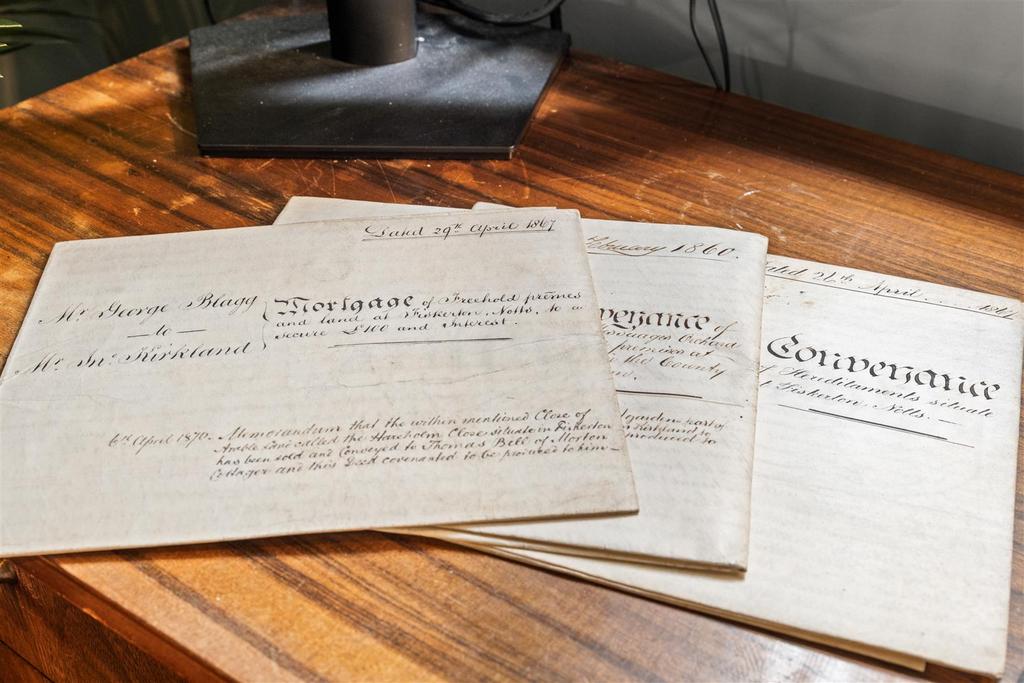 Dated 29th April 1867
Mr George Blagg
— to —
Mr Jno Kirkland
Mortgage of Freehold premes
and land at Fiskerton, Notts, to a
secure £100 and Interest.
6th April 1870. Memorandum that the within mentioned Close of
Arable Land called the Hareholm Close situate in Fiskerton
has been sold and Conveyed to Thomas Bell of Morton
Cottager and this Deed covenanted to be produced to him —
February 1860.
veyance of
Orchard
premises at
the County
part of
Kirkland to
produced to
ated 26th April 186
Conveyance
of Hereditaments situate
Fiskerton Notts.